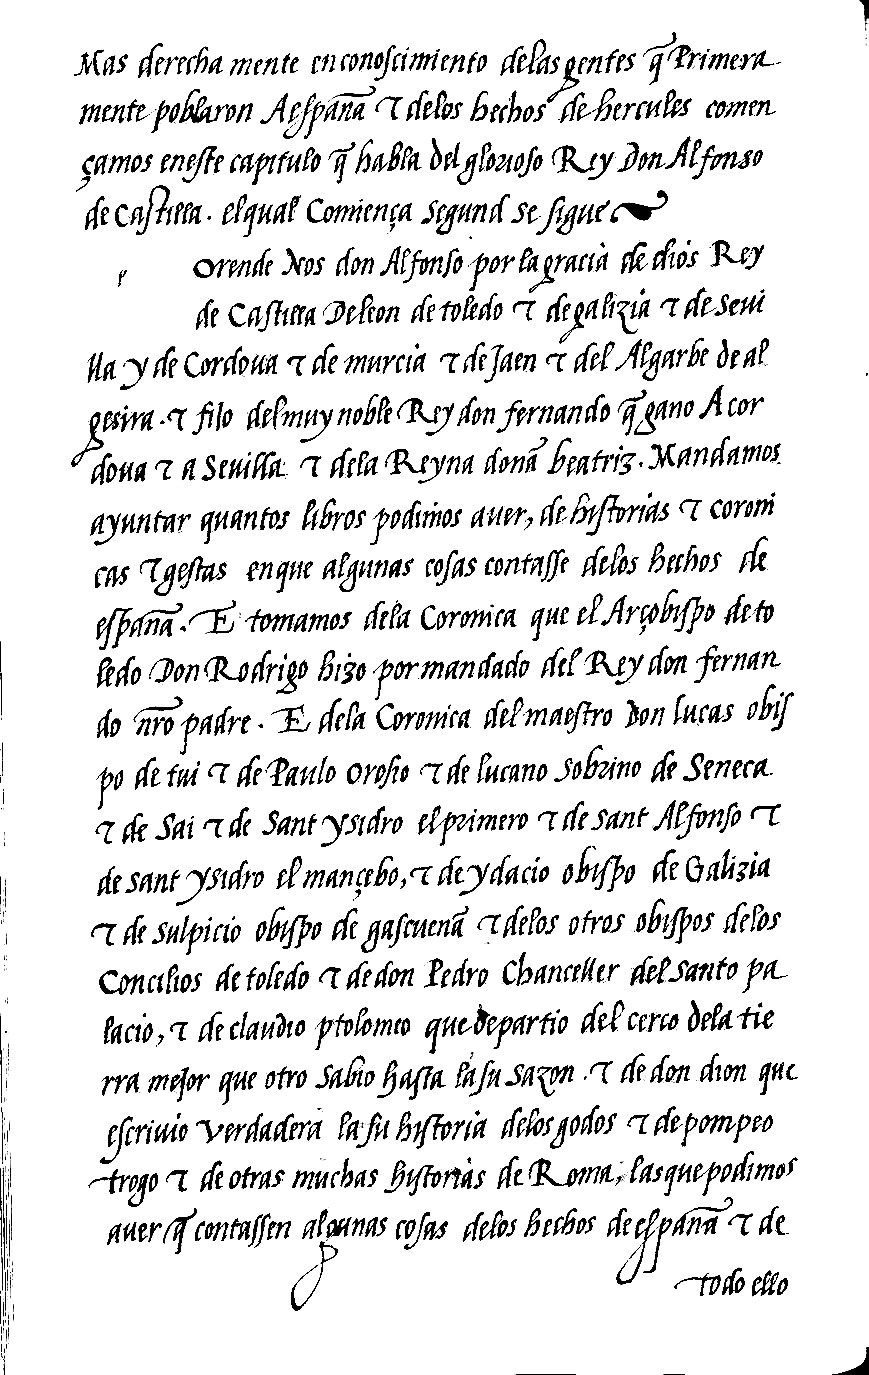 Mas derecha mente enconoscimiento delas gentes q̃ Primera
mente poblaron Aespan̄a ⁊ delos hechos de hercules comen
çamos eneste capitulo q̃ habla del glorioso Rey Don Alfonso
de Castilla. elqual Comiença segund se sigue
orende Nos don Alfonso por la gracia de dios Rey
de Castilla Deleon de toledo ⁊ de galizia ⁊ de Seui
lla y de Cordoua ⁊ de murcia ⁊ de Jaen ⁊ del Algarbe de al
gesira. ⁊ fijo del muy noble Rey don fernando q̃ gano A cor
doua ⁊ a Seuilla ⁊ dela Reyna don̄a beatriz. Mandamos
ayuntar quantos libros podimos auer, de historias ⁊ coroni
cas ⁊ gestas enque algunas cosas contasse delos hechos de
espan̄a. E tomamos dela Coronica que el Arçobispo de to
ledo Don Rodrigo hizo por mandado del Rey don fernan
do nr̄o padre. E dela Coronica del maestro Don lucas obis
po de tui ⁊ de Paulo orosio ⁊ de lucano Sobrino de Seneca
⁊ de Sai ⁊ de Sant ysidro el primero ⁊ de sant Alfonso ⁊
de sant ysidro el mançebo, ⁊ de ydacio obispo de Galizia
⁊ de sulpicio obispo de gascuen̄a ⁊ delos otros obispos delos
Concilios de toledo ⁊ de don Pedro Chanceller del santo pa
lacio, ⁊ de claudio ptolomeo que departio del cerco dela tie
rra mejor que otro Sabio hasta la su sazon. ⁊ de don dion que
escriuio verdadera la su historia delos godos ⁊ de pompeo
trogo ⁊ de otras muchas historias de Roma, las que podimos
auer q̃ contassen algunas cosas delos hechos de espan̄a ⁊ de
todo ello